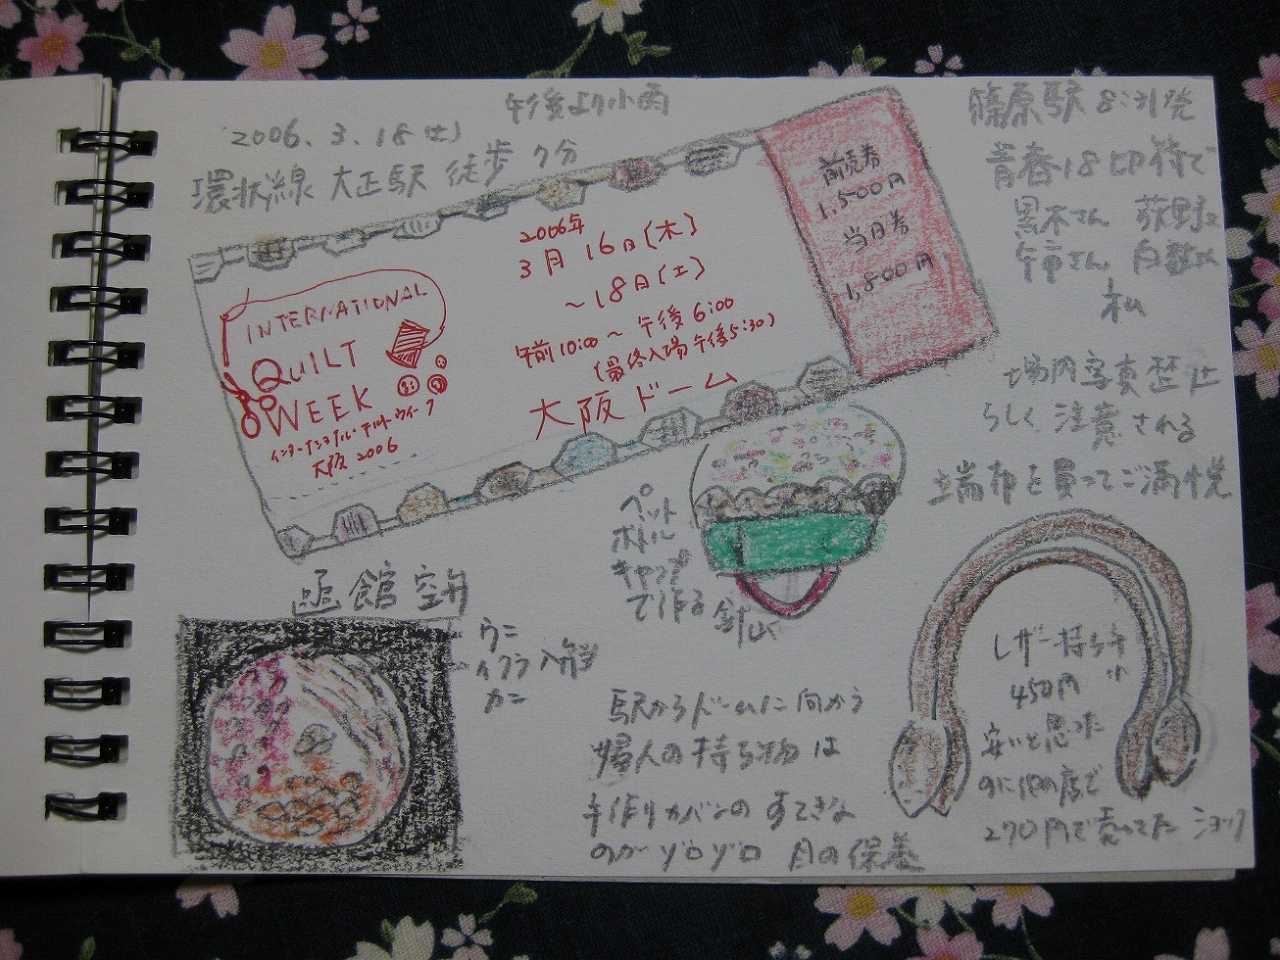 2006. 3. 18(土)
午後より小雨
環状線 大正駅 徒歩 7分
INTERNATIONAL
QUILT
WEEK
インターナショナル・キルト・ウィーク
大阪 2006
2006年
3月16日(木)
〜18日(土)
午前10:00〜午後6:00
(最終入場午後5:30)
大阪ドーム
前売券
1,500円
当日券
1,800円
篠原駅 8:31発
青春18切符で
黒木さん 荻野さん
さん
私
場内写真禁止
らしく注意される
端布を買ってご満悦
ペット
ボトル
キャップ
で作る 針山
函館 空弁
ウニ
イクラ 入
カニ
駅からドームに向かう
婦人の持ち物は
手作りカバンのすてきな
のがゾロゾロ 目の保養
レザー持ち手
450円
安いと思った
のに他の店で
270円で売ってた ショック